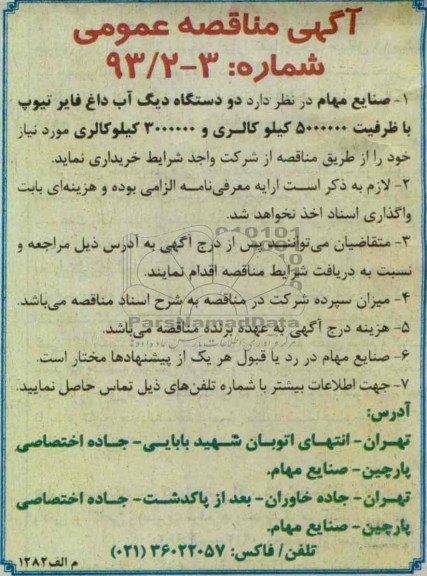 آگهی مناقصه عمومی
شماره: ۳-۹۳/۲
۱- صنایع مهام در نظر دارد دو دستگاه دیگ آب داغ فایر تیوپ
با ظرفیت ۵۰۰۰۰۰۰ کیلو کالری و ۳۰۰۰۰۰۰ کیلوکالری مورد نیاز
خود را از طریق مناقصه از شرکت واجد شرایط خریداری نماید.
۲- لازم به ذکر است ارایه معرفی‌نامه الزامی بوده و هزینه‌ای بابت
واگذاری اسناد اخذ نخواهد شد.
۳- متقاضیان می‌توانند پس از درج آگهی به آدرس ذیل مراجعه و
نسبت به دریافت شرایط مناقصه اقدام نمایند.
۴- میزان سپرده شرکت در مناقصه به شرح اسناد مناقصه می‌باشد.
ParsNamadData
۵- هزینه درج آگهی به عهده برنده مناقصه می‌باشد.
۶- صنایع مهام در رد یا قبول هر یک از پیشنهادها مختار است.
۷- جهت اطلاعات بیشتر با شماره تلفن‌های ذیل تماس حاصل نمایید.
آدرس:
تهران- انتهای اتوبان شهید بابایی- جاده اختصاصی
پارچین- صنایع مهام.
تهران- جاده خاوران- بعد از پاکدشت- جاده اختصاصی
پارچین- صنایع مهام.
تلفن/ فاکس: ۳۶۰۲۲۰۵۷ (۰۲۱)
م الف۱۲۸۲